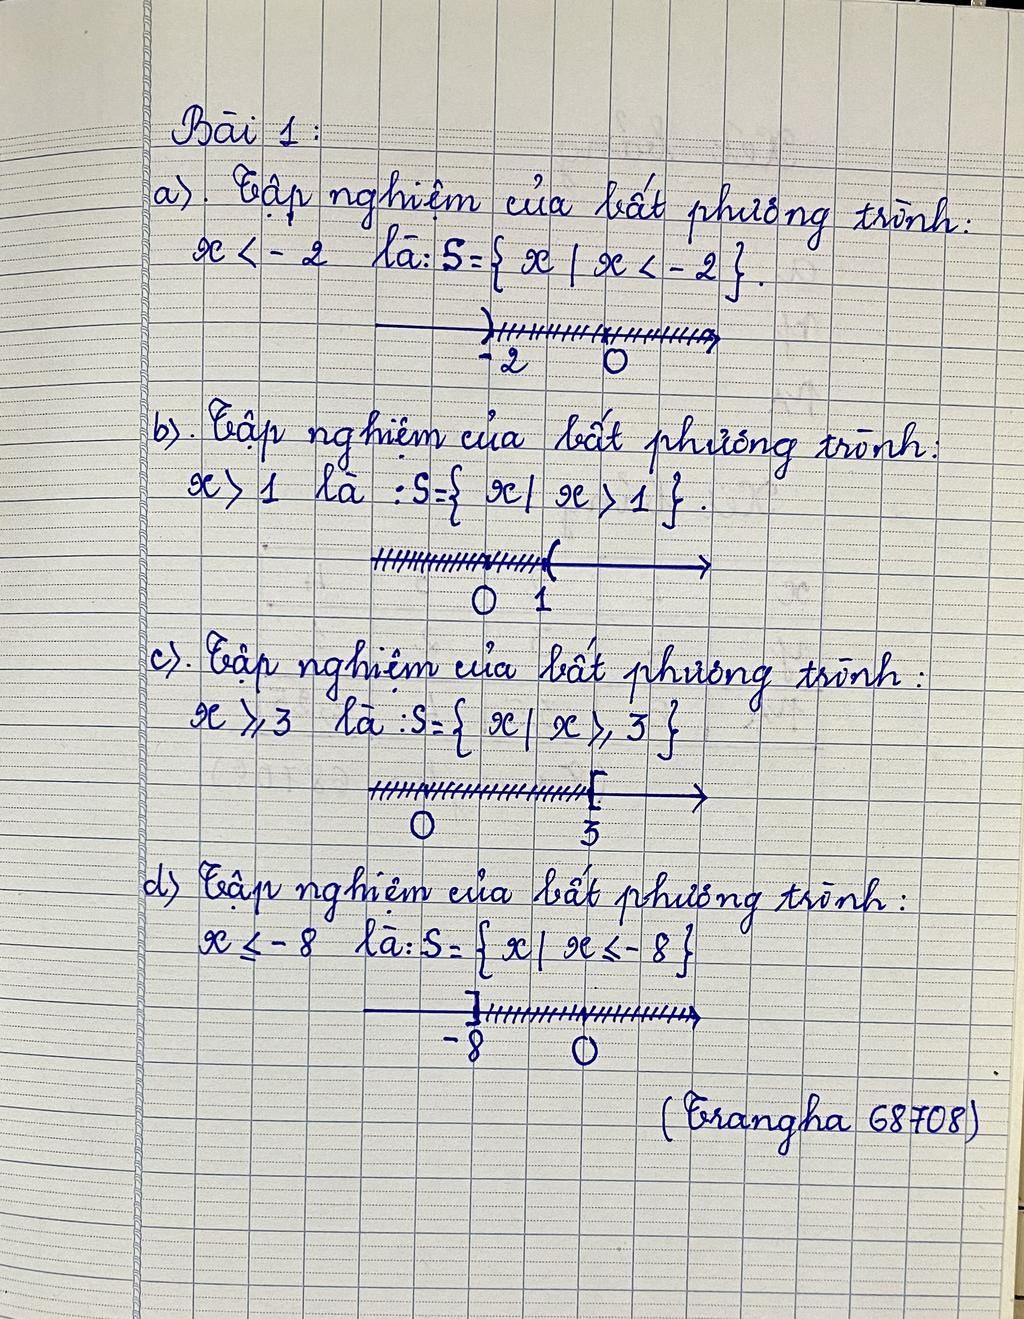 Bài 1:
a). Tập nghiệm của bất phương trình:
x < - 2 là: S = { x | x < - 2 }.
- 2 0
b). Tập nghiệm của bất phương trình:
x > 1 là : S = { x | x > 1 }.
0 1
c). Tập nghiệm của bất phương trình:
x ≥ 3 là : S = { x | x ≥ 3 }
0 3
d) Tập nghiệm của bất phương trình:
x ≤ - 8 là: S = { x | x ≤ - 8 }
- 8 0
(Trangha 68708)